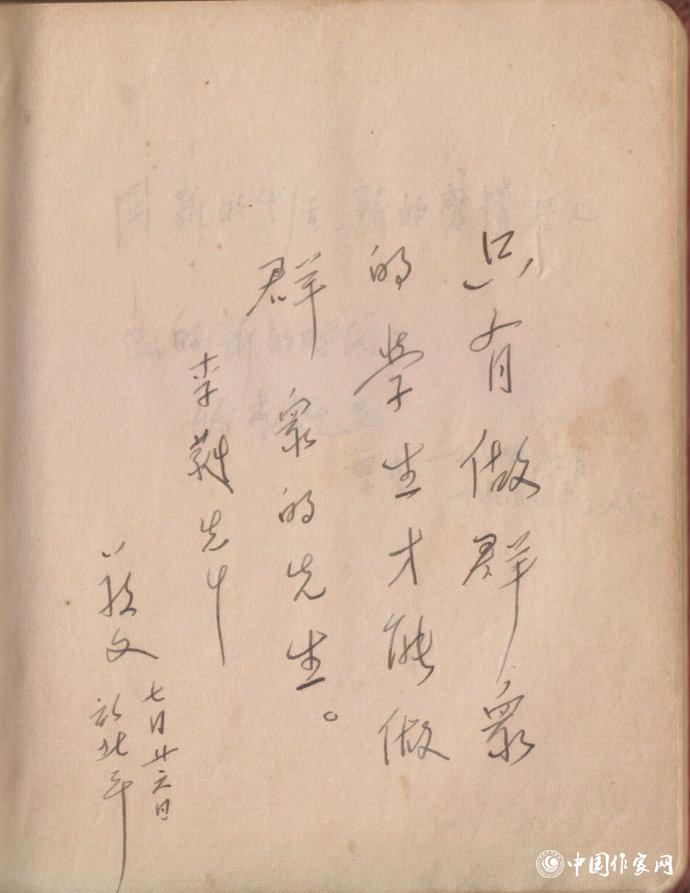 只有做群眾
的学生才能做
群眾的先生。
李蕤先生
文
七月廿六日
於北平
中国作家网